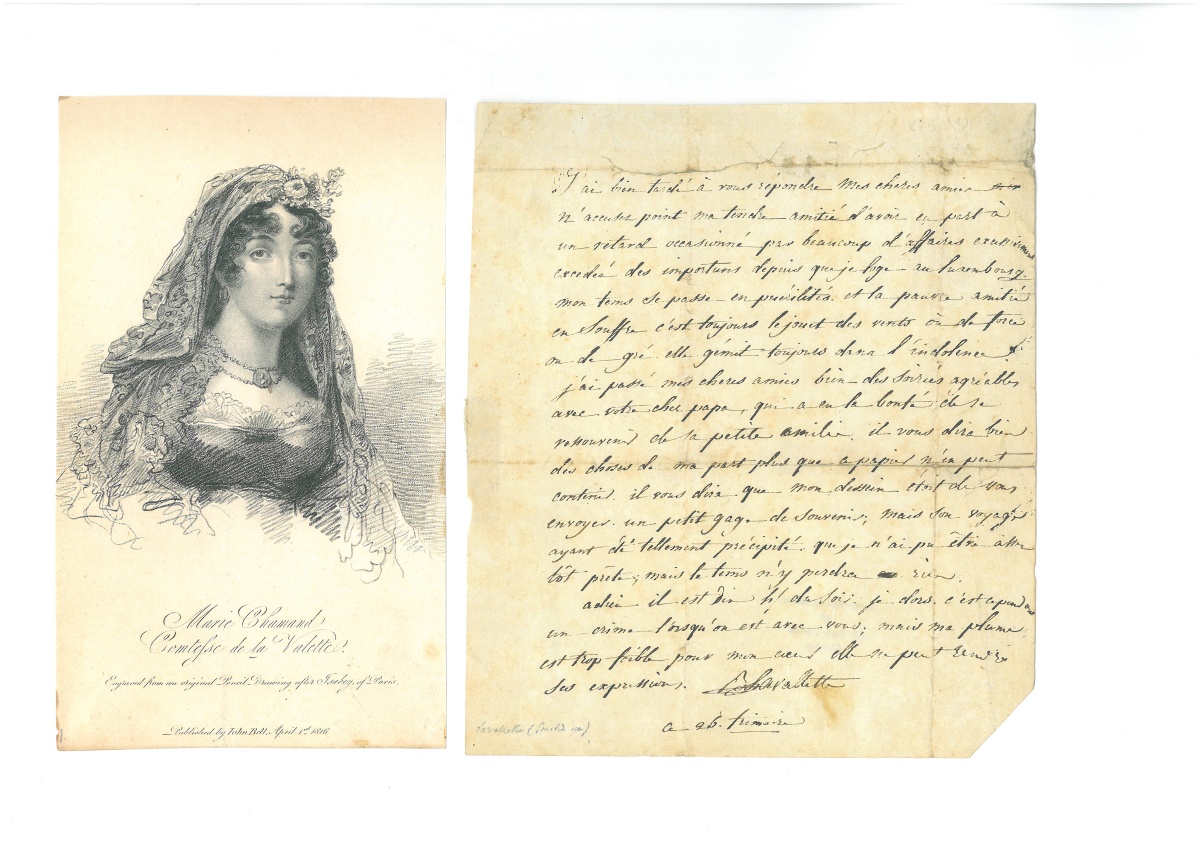 Marie Chamand
Comtesse de la Valette.
Engraved from an original Pencil Drawing after Isabey, of Paris.
Published by John Bell, April 1st 1816
J'ai bien tardé à vous répondre mes cheres amies
n'accusez point ma tendre amitié d'avoir eu part à
un retard occasionné par beaucoup d'affaires
excedée des importuns depuis que je loge au luxembourg
mon tems se passe en puérilités et la pauvre amitié
en souffre c'est toujours le jouet des vents où de force
ou de gré elle gémit toujours dans l'indolence
j'ai passé mes cheres amies bien des soirées agréables
avec votre cher papa, qui a eu la bonté de se
ressouvenir de sa petite amilie. il vous dira bien
des choses de ma part plus que ce papier n'en peut
contenir. il vous dira que mon dessein étoit de vous
envoyer un petit gage de souvenir; mais son voyage
ayant été tellement précipité que je n'ai pu être assez
tôt prête; mais le tems n'y perdra rien.
adieu il est dix h. du soir. je dors. c'est cependant
un crime lorsqu'on est avec vous; mais ma plume
est trop foible pour mon cœur elle ne peut rendre
ses expressions. Lavallette
a 26. frimaire
Lavallette